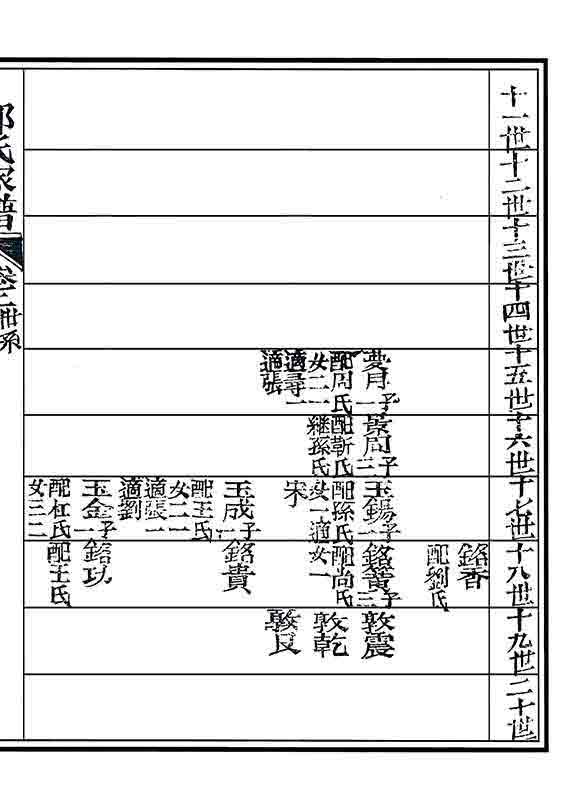 十一世
十二世
十三世
十四世
十五世
十六世
十七世
十八世
十九世
二十世
銘香
配劉氏
夢月子一
配周氏
女二一
適尋一
適張
景周子三
配靳氏
繼孫氏
玉錫子一
配孫氏
女一適
宋
銘簧子三
配尚氏
女一
敦震
敦乾
敦艮
玉成子一
配王氏
女二一
適張一
適劉
銘貴
玉金子一
配杜氏
女三二
銘功
配王氏
氏家譜
卷二世系